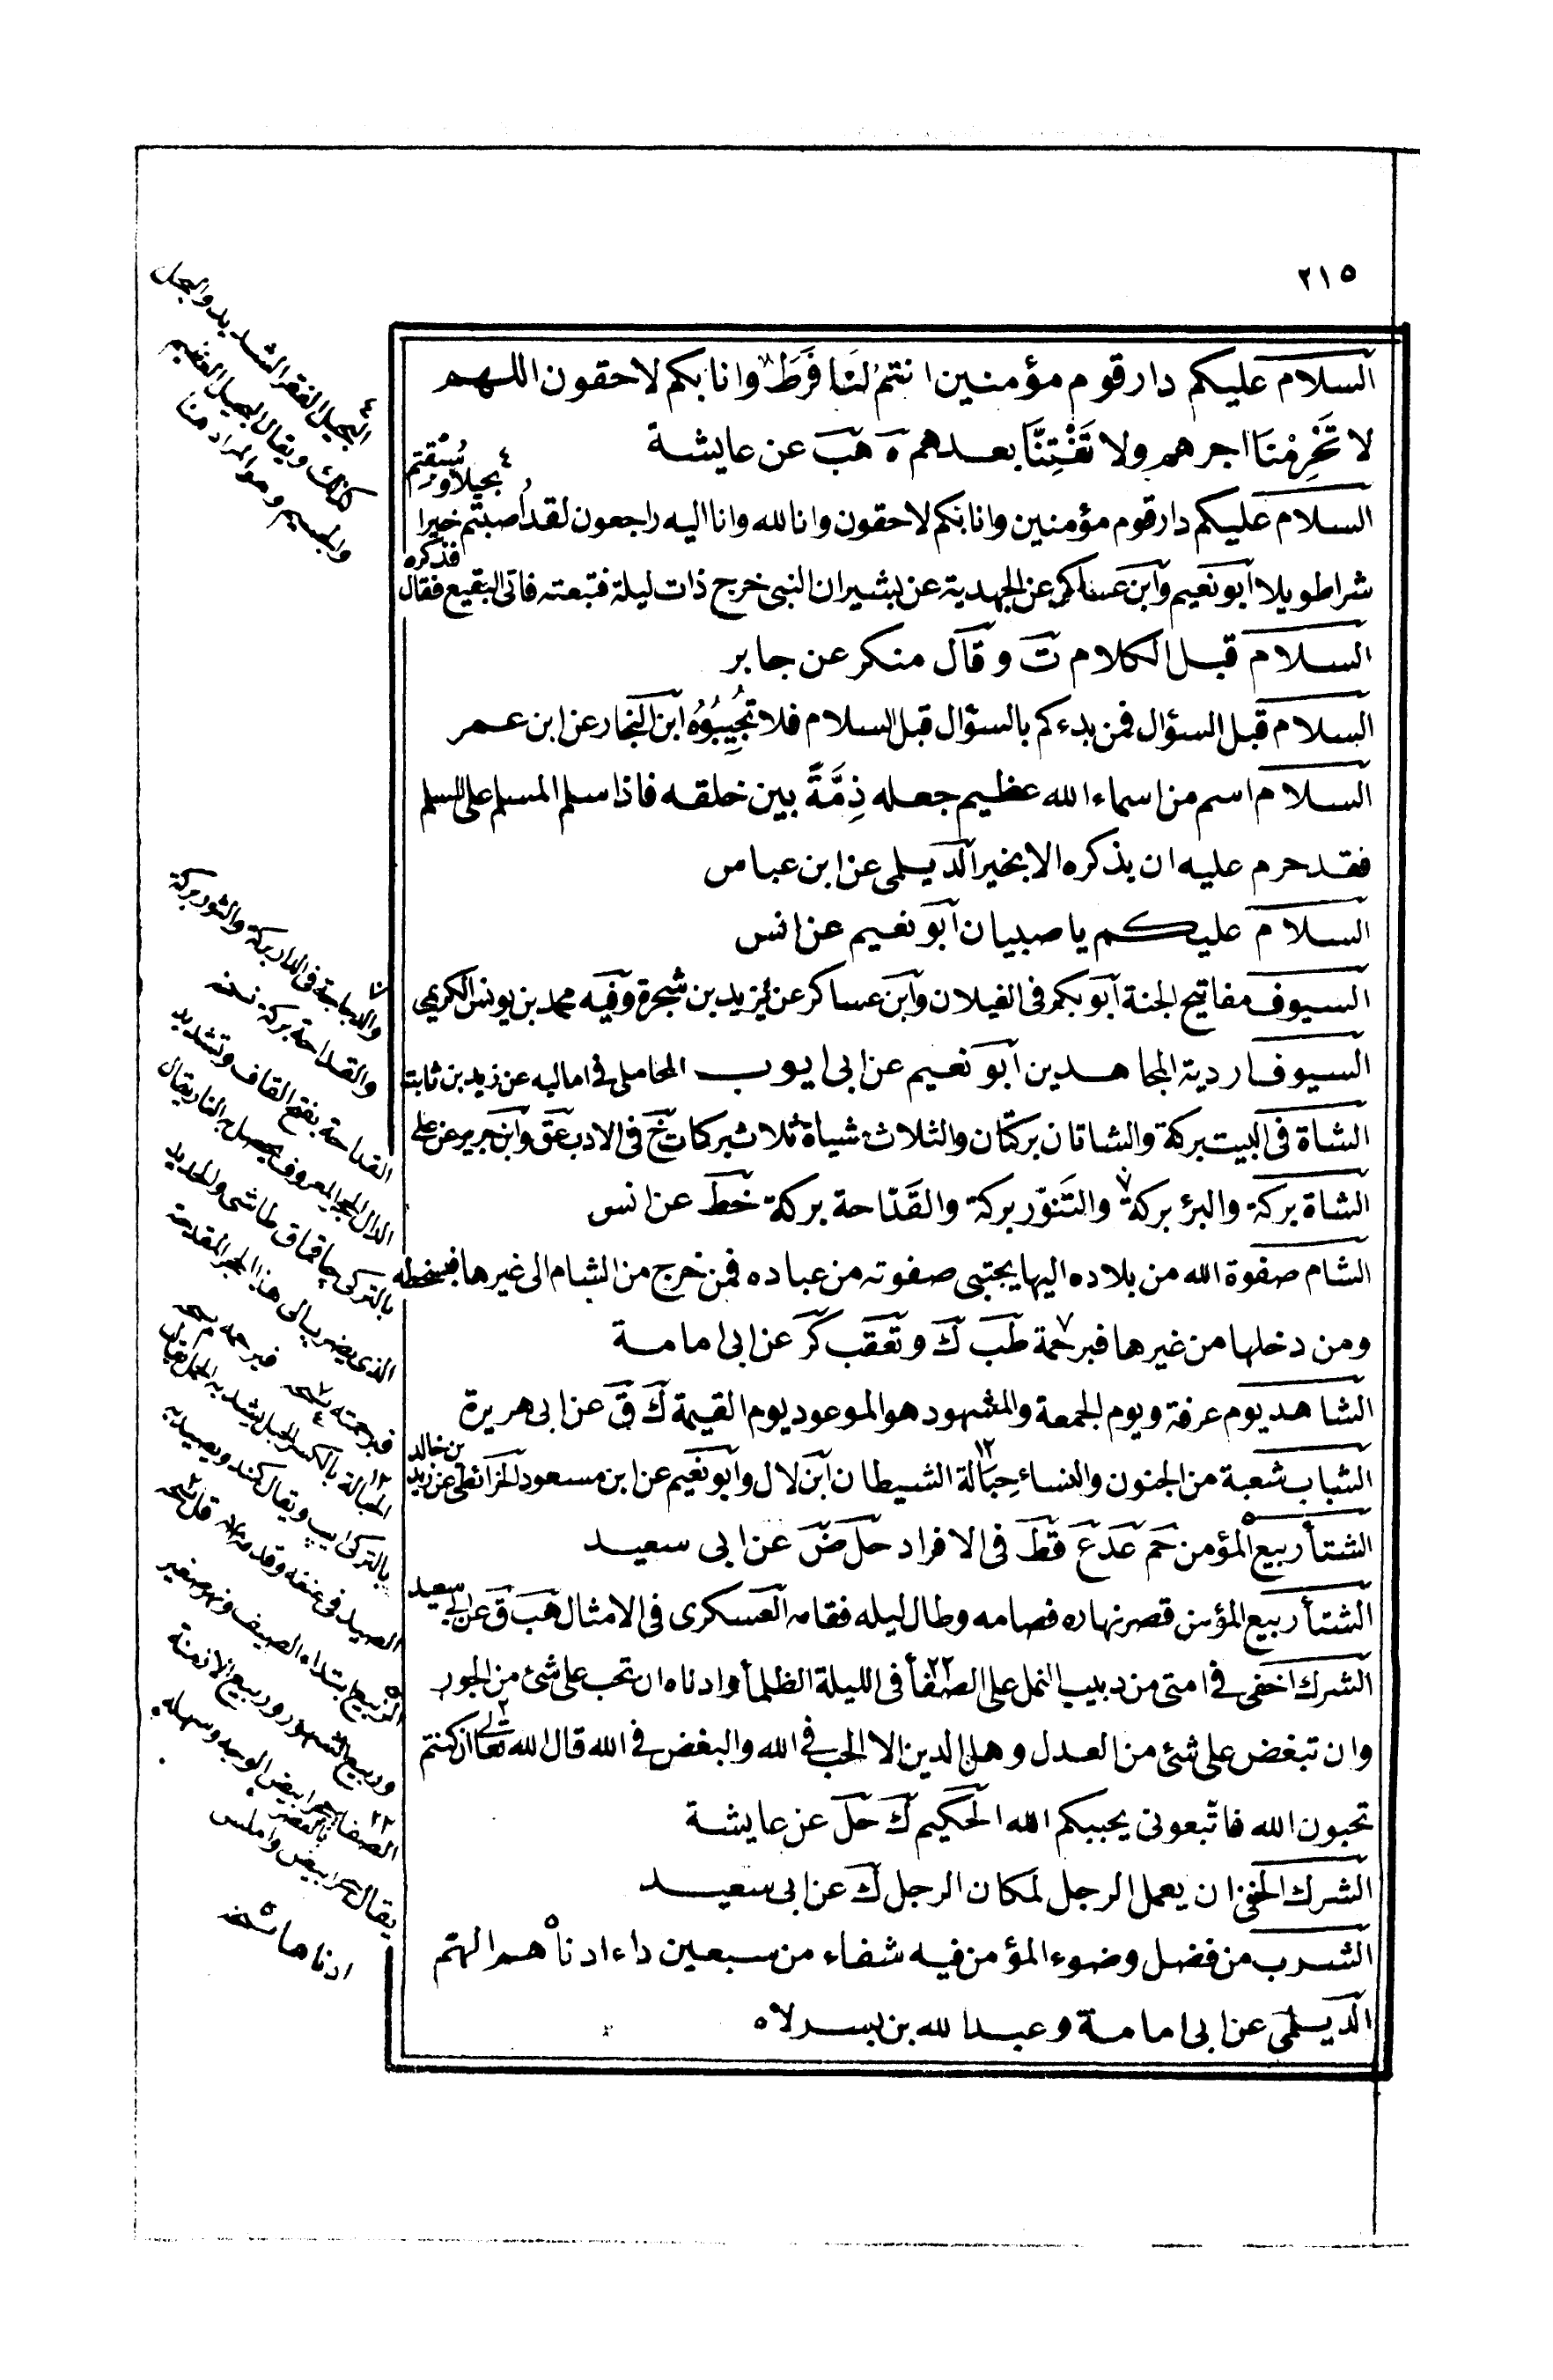 ٢١٥
السلام عليكم دار قوم مؤمنين انتم لَنَا فَرَطٌ وانا بكم لاحقون اللهم
لا تَحْرِمْنَا اجرهم ولا تَفْتِنَّا بعدهم ه هب عن عايشة
السلام عليكم دار قوم مؤمنين وانا بكم لاحقون وانا لله وانا اليه راجعون لقد اُصبتم خيرا
٤ بجيلا وسُبقتم
شرا طويلا ابو نعيم وابن عساكر عن الجهدية عن بشير ان النبى خرج ذات ليلة فتبعته فاتى البقيع فقال
فذكره
السلام قبل الكلام ت وقال منكر عن جابر
السلام قبل السؤال فمن بدءكم بالسؤال قبل السلام فلا تُجِيبُوُهُ ابن النجار عن ابن عمر
السلام اسم من اسماء الله عظيم جعله ذِمَّةً بين خلقه فاذا سلم المسلم على المسلم
فقد حرم عليه ان يذكره الا بخير الديلمى عن ابن عباس
السلام عليكم يا صبيان ابو نعيم عن انس
السيوف مفاتيح الجنة ابو بكر فى الغيلان وابن عساكر عن يزيد بن شجرة وفيه محمد بن يونس الكريمى
السيوف اردية المجاهدين ابو نعيم عن ابى ايوب المحاملى فى اماليه عن زيد بن ثابت
الشاة فى البيت بركة والشاتان بركتان والثلاث شياة ثلاث بركات خ فى الادب عق وابن جرير عن على
الشاة بركة والبئر بركة والتَنّور بركة والقَدّاحة بركة خط عن انس
الشام صفوة الله من بلاده اليها يجتبى صفوته من عباده فمن خرج من الشام الى غيرها فبسخطه
ومن دخلها من غيرها فبرحمة طب ك وتعقب كر عن ابى امامة
الشاهد يوم عرفة ويوم الجمعة والمشهود هو الموعود يوم القيمة ك ق عن ابى هريرة
الشباب شعبة من الجنون والنساء حِبَالة الشيطان ابن لال وابو نعيم عن ابن مسعود الخرائطى عن زيد
بن خالد
الشتأ ربيع المؤمن حم ع قط فى الافراد حل ض عن ابى سعيد
الشتأ ربيع المؤمن قصر نهاره فصامه وطال ليله فقامه العسكرى فى الامثال هب ق عن ابى سعيد
الشرك اخفى فى امتى من دبيب النمل على الصفأ فى الليلة الظلمأ وادناه ان تحب على شئ من الجور
وان تبغض على شئ من العدل وهل الدين الا الحب فى الله والبغض فى الله قال الله تعالى ان كنتم
تحبون الله فاتّبعونى يحببكم الله الحكيم ك حل عن عايشة
الشرك الخفى ان يعمل الرجل لمكان الرجل ك عن ابى سعيد
الشرب من فضل وضوء المؤمن فيه شفاء من سبعين داء ادناهم الهم
الديلمى عن ابى امامة وعبد الله بن بسر لاه
٤ البجيل الفقر الشديد والبجل
كذلك ويقال البجيل الغضيم
والجسيم وهو المراد هنا
والدجاجة فى الدار بركة والثور بركة
والقداحة بركة نسخه
القداحة بفتح القاف وتشديد
الدال الحجر المعروف يحصل به النار يقال
بالتركى چاقماق طاشى والحديد
الذى يضرب الى هذا الحجر المقدحة
١٢ الحبالة بالكسر الحبل
بالتركى ايپ ويقال كمند ويصيد به
الصيد فى عنقه
الربيع ابتداء الصيف ونهر صغير
وربيع الشهور وربيع الازمنة
٢٢ الصفا
يقال حجر ابيض واملس
ادناها نسخه